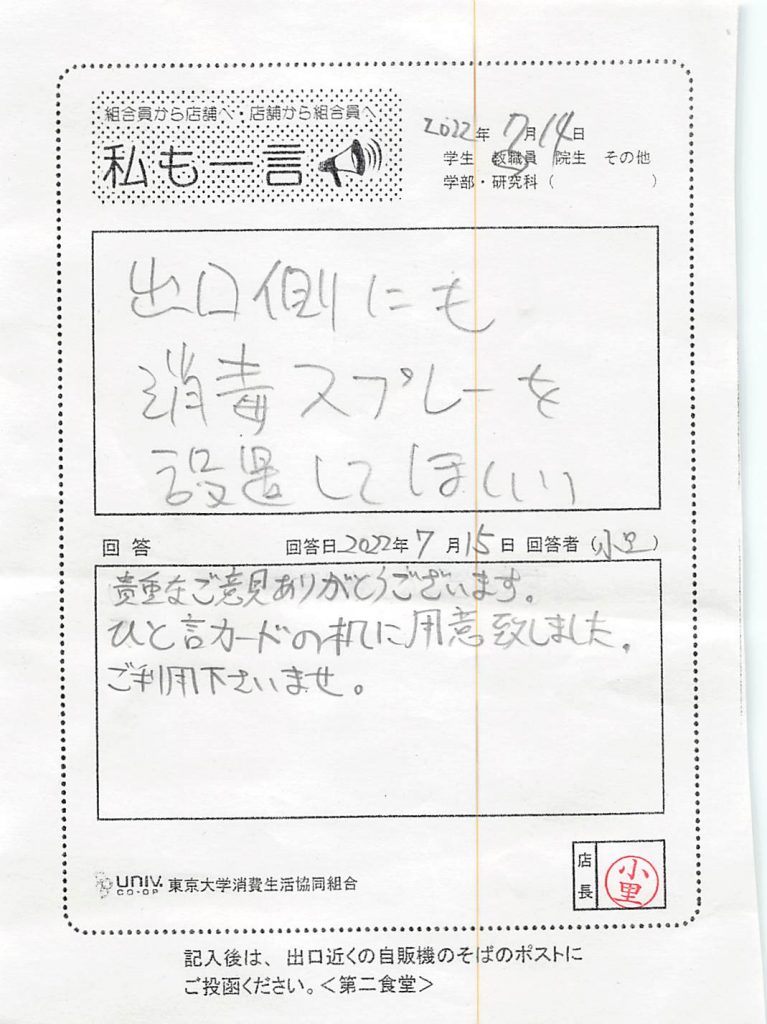 組合員から店舗へ・店舗から組合員へ
私も一言
2022年 7月14日
学生 教職員 院生 その他
学部・研究科( )
出口側にも
消毒スプレーを
設置してほしいい
回答 回答日2022年7月15日 回答者(小里)
貴重なご意見ありがとうございます。
ひと言カードの机に用意致しました。
ご利用下さいませ。
UNIV. CO-OP 東京大学消費生活協同組合
店長 小里
記入後は、出口近くの自販機のそばのポストに
ご投函ください。<第二食堂>